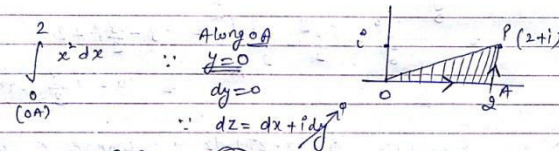 2
∫ x² dx
0
(OA)
∵ Along OA
y=0
dy=0
∵ dz = dx + idy 0
i
P (2+i)
O
2 A